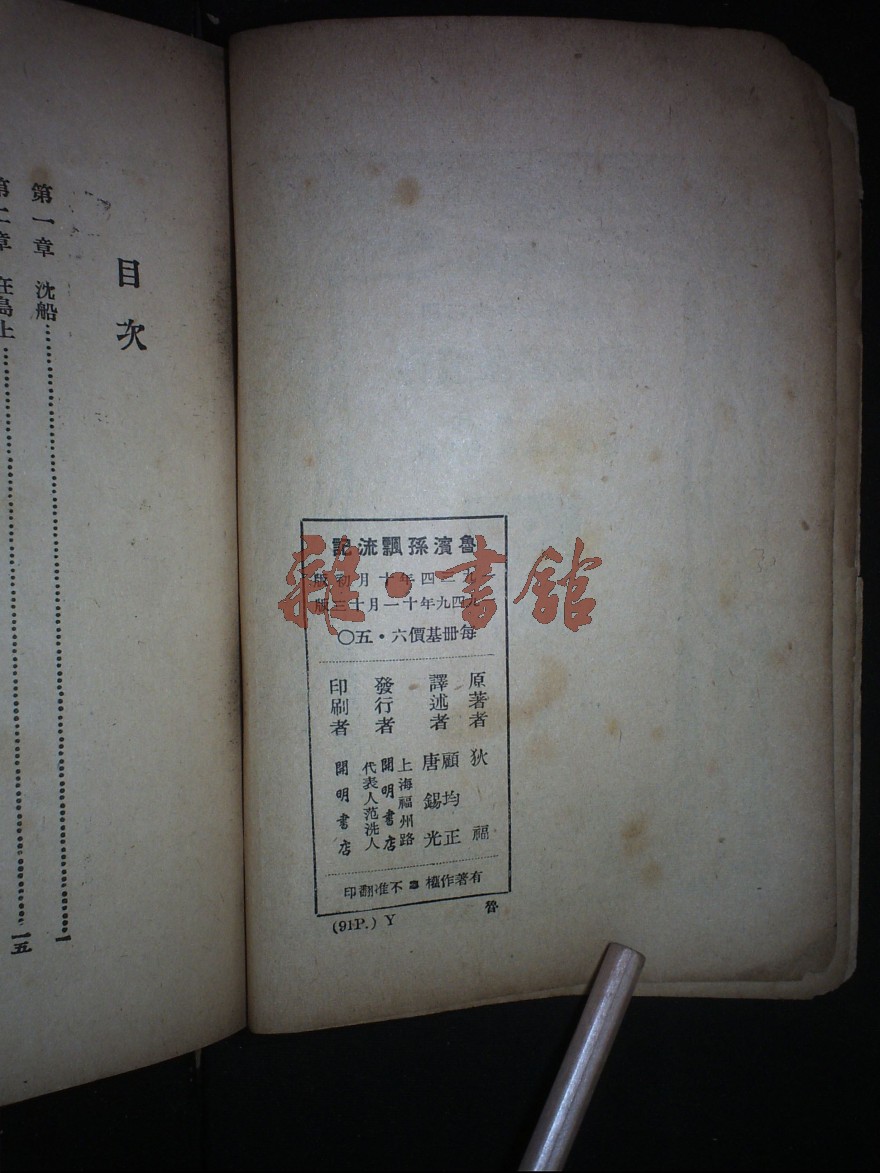 魯濱孫飄流記
九三四年十月初版
九四九年十一月十三版
每冊基價六・五〇
原著者 狄福
譯述者 顧均正
唐錫光
發行者 上海福州路
開明書店
代表人范洗人
印刷者 開明書店
有著作權 不准翻印
魯
(91P.) Y
目次
第一章 沈船……一
第二章 在島上……一五
雜・書館